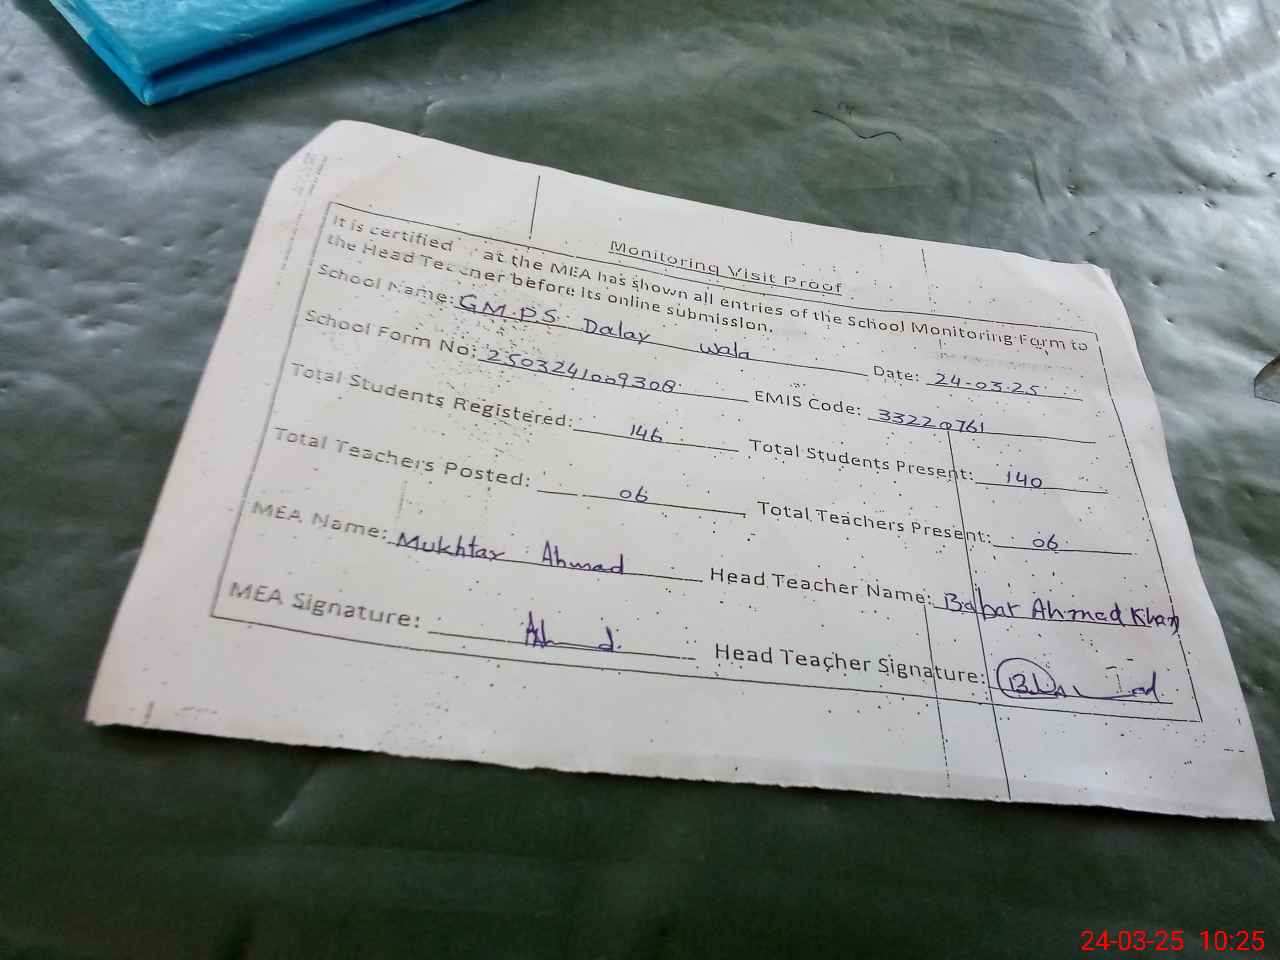 Monitoring Visit Proof
It is certified that the MEA has shown all entries of the School Monitoring Form to
the Head Teacher before its online submission.
School Name: GMPS Dalay wala Date: 24-03-25
School Form No: 2503241009308 EMIS Code: 33220761
Total Students Registered: 146 Total Students Present: 140
Total Teachers Posted: 06 Total Teachers Present: 06
MEA Name: Mukhtar Ahmad Head Teacher Name: Babar Ahmed Khan
MEA Signature: Head Teacher Signature:
24-03-25 10:25